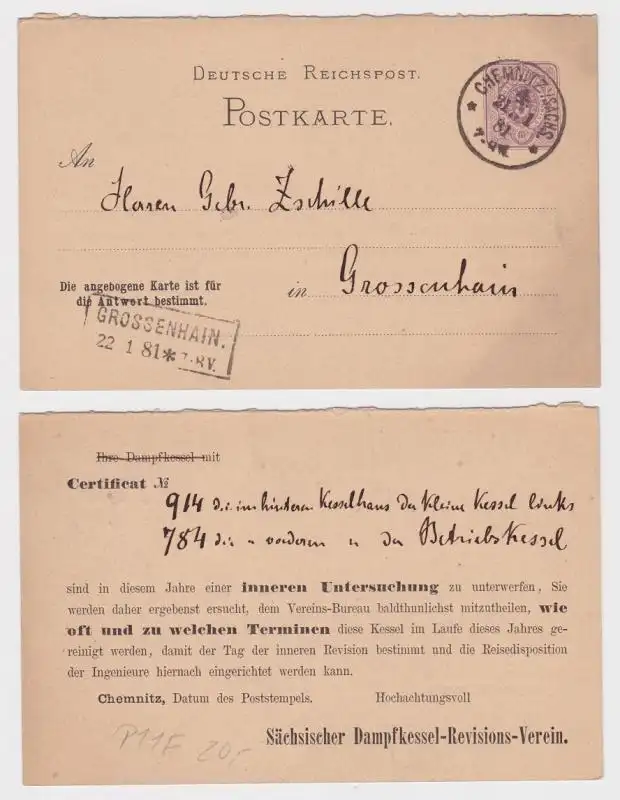 DEUTSCHE REICHSPOST.
POSTKARTE.
CHEMNITZ (SACHS.
21 1
81
7-8N.
An
Herren Gebr. Zschille
in Grossenhain
Die angebogene Karte ist für
die Antwort bestimmt.
GROSSENHAIN.
22 1 81 * 7-8V.
Ihre Dampfkessel mit
Certificat №
914 d.i. im hinteren Kesselhaus der kleine Kessel links
784 die " vorderen " der Betriebskessel
sind in diesem Jahre einer inneren Untersuchung zu unterwerfen, Sie
werden daher ergebenst ersucht, dem Vereins-Bureau baldthunlichst mitzutheilen, wie
oft und zu welchen Terminen diese Kessel im Laufe dieses Jahres ge-
reinigt werden, damit der Tag der inneren Revision bestimmt und die Reisedisposition
der Ingenieure hiernach eingerichtet werden kann.
Chemnitz, Datum des Poststempels. Hochachtungsvoll
Sächsischer Dampfkessel-Revisions-Verein.
P11F 20,-